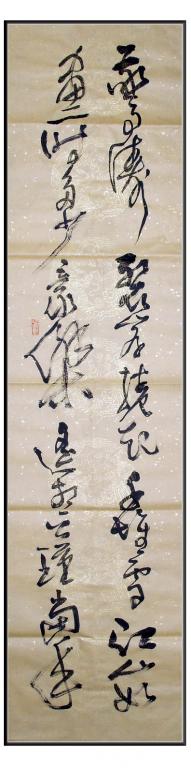 驚濤裂岸捲起千堆雪江山如
畫一時多少豪傑遙想公瑾當年